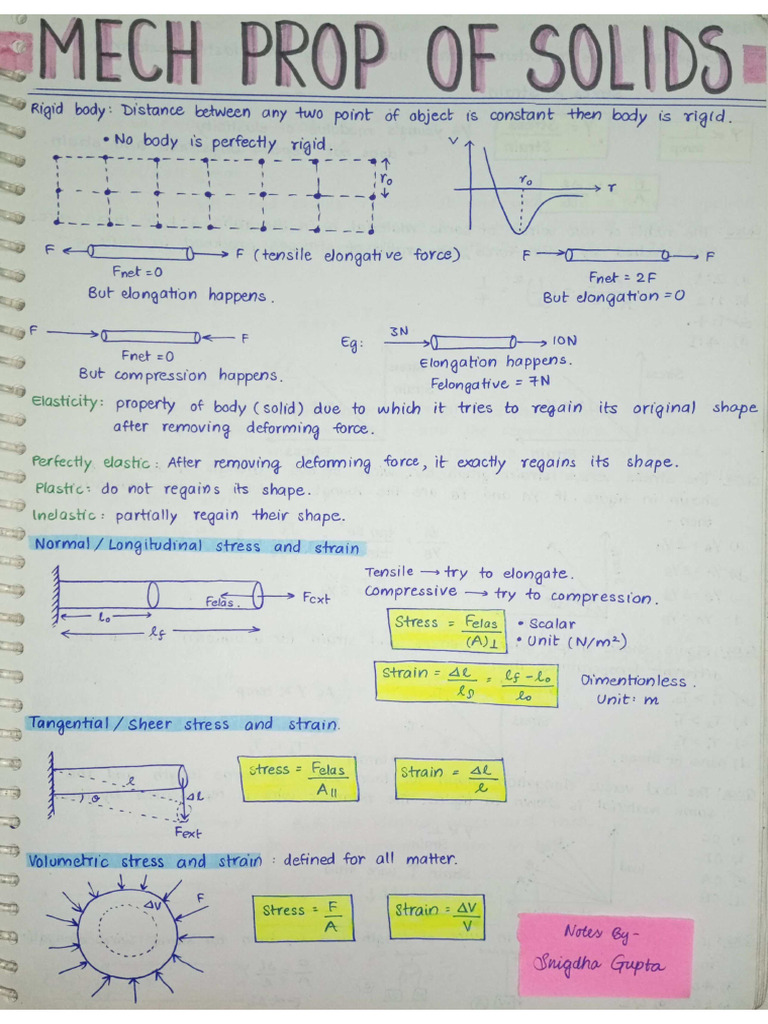 MECH PROP OF SOLIDS
Rigid body: Distance between any two point of object is constant then body is rigid.
• No body is perfectly rigid.
V
r₀
r₀
r
F F (tensile elongative force)
Fnet = 0
But elongation happens.
F F
Fnet = 2F
But elongation = 0
F F
Fnet = 0
But compression happens.
Eg: 3N 10N
Elongation happens.
Felongative = 7N
Elasticity: property of body (solid) due to which it tries to regain its original shape
after removing deforming force.
Perfectly elastic: After removing deforming force, it exactly regains its shape.
Plastic: do not regains its shape.
Inelastic: partially regain their shape.
Normal / Longitudinal stress and strain
Felas. Fext
l₀
lf
Tensile → try to elongate.
Compressive → try to compression.
Stress = Felas / (A)⊥
• Scalar
• Unit (N/m²)
Strain = Δl / l = lf - l₀ / l₀
Dimentionless.
Unit: m
Tangential / Sheer stress and strain.
l
θ
Δl
Fext
Stress = Felas / A||
Strain = Δl / l
Volumetric stress and strain : defined for all matter.
ΔV
F
Stress = F / A
Strain = ΔV / V
Notes By-
Snigdha Gupta